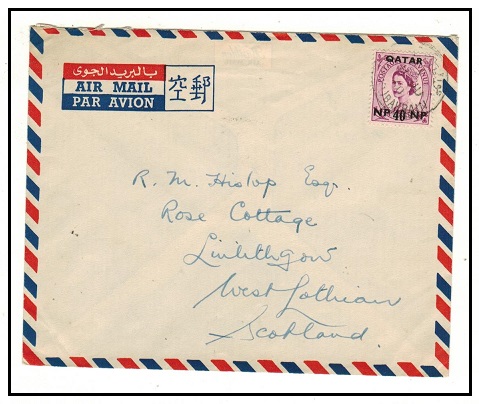 بالبريد الجوى
AIR MAIL
PAR AVION
空郵
QATAR
POSTAGE REVENUE
NP 40 NP
R. M. Hislop Esq.
Rose Cottage
Linlithgow
West Lothian
Scotland